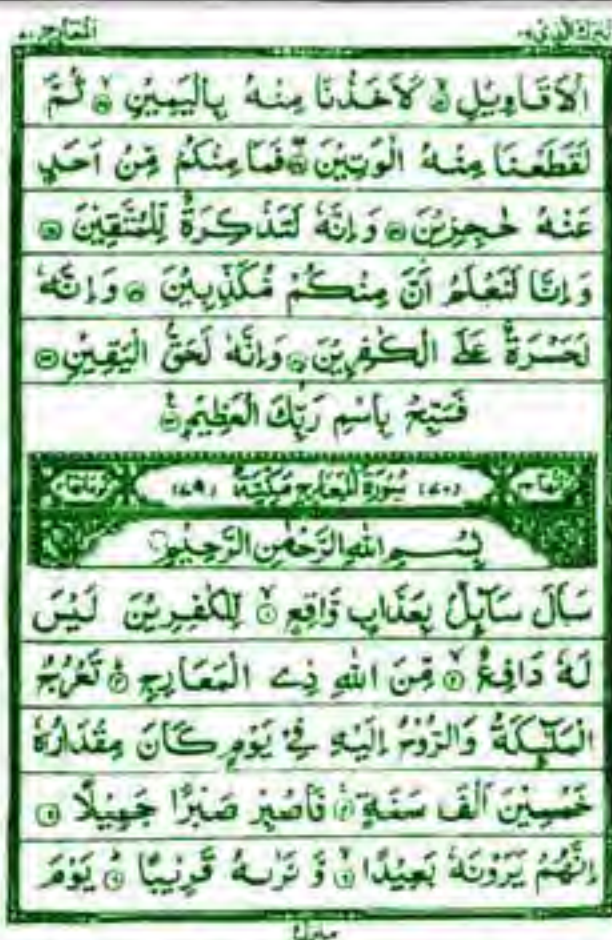 المعارج ٧٠ تبرك الذي ٢٩
الْاَقَاوِيْلِ ۙ لَاَخَذْنَا مِنْهُ بِالْيَمِيْنِ ۙ ثُمَّ
لَقَطَعْنَا مِنْهُ الْوَتِيْنَ ۖ فَمَا مِنْكُمْ مِّنْ اَحَدٍ
عَنْهُ حٰجِزِيْنَ وَ اِنَّهٗ لَتَذْكِرَةٌ لِّلْمُتَّقِيْنَ
وَ اِنَّا لَنَعْلَمُ اَنَّ مِنْكُمْ مُّكَذِّبِيْنَ وَ اِنَّهٗ
لَحَسْرَةٌ عَلَى الْكٰفِرِيْنَ وَ اِنَّهٗ لَحَقُّ الْيَقِيْنِ
فَسَبِّحْ بِاسْمِ رَبِّكَ الْعَظِيْمِ
(٧٠) سُوْرَةُ الْمَعَارِجِ مَكِّيَّةٌ (٧٩)
بِسْمِ اللّٰهِ الرَّحْمٰنِ الرَّحِيْمِ
سَاَلَ سَآئِلٌۢ بِعَذَابٍ وَّاقِعٍ ۙ لِّلْكٰفِرِيْنَ لَيْسَ
لَهٗ دَافِعٌ ۙ مِّنَ اللّٰهِ ذِى الْمَعَارِجِ ۗ تَعْرُجُ
الْمَلٰٓئِكَةُ وَ الرُّوْحُ اِلَيْهِ فِىْ يَوْمٍ كَانَ مِقْدَارُهٗ
خَمْسِيْنَ اَلْفَ سَنَةٍ ۚ فَاصْبِرْ صَبْرًا جَمِيْلًا
اِنَّهُمْ يَرَوْنَهٗ بَعِيْدًا ۙ وَّ نَرٰىهُ قَرِيْبًا ۗ يَوْمَ